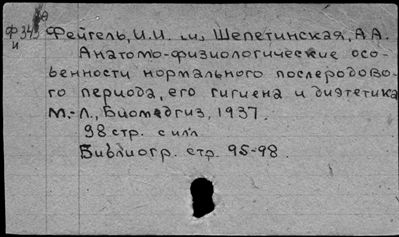 Ф343 Фейгель, И.И. и, Шепетинская, А.А.
и
Анатомо-физиологические осо-
бенности нормального послеродово-
го периода, его гигиена и диэтетика
М.-Л., Биомедгиз, 1937.
98 стр. с илл
Библиогр. стр. 95-98.